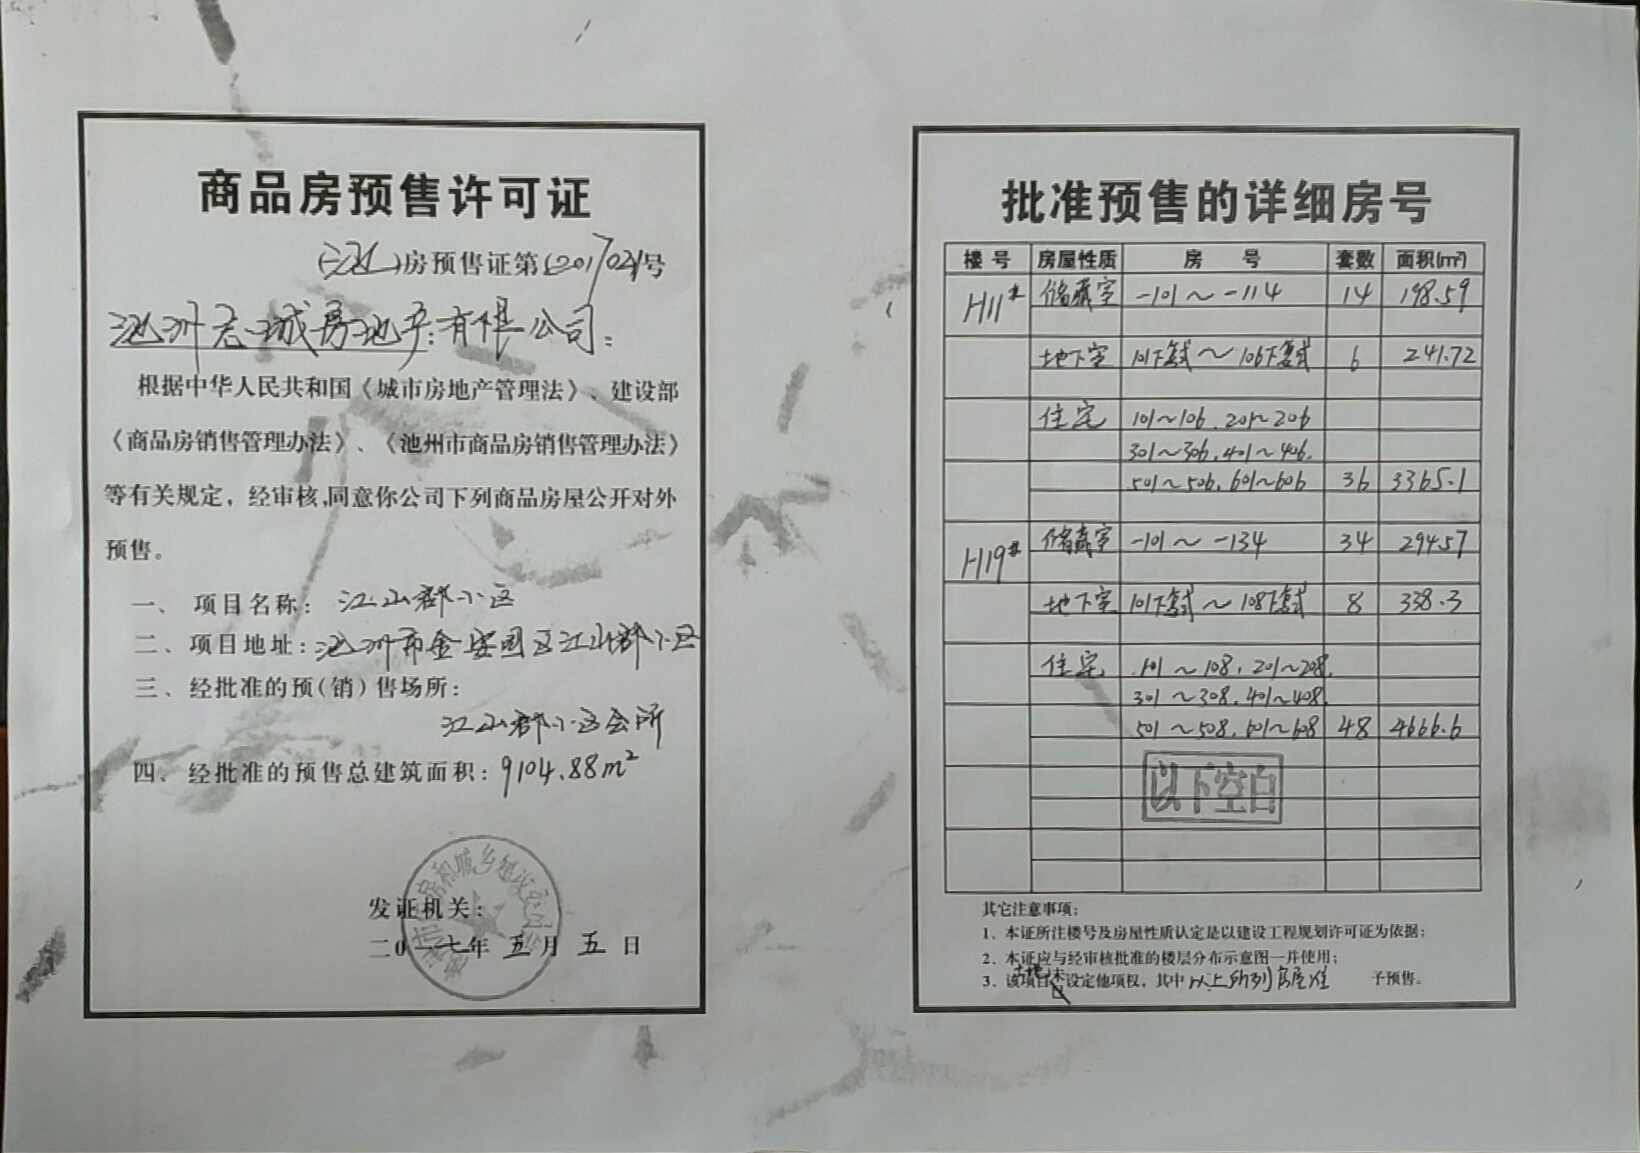 商品房预售许可证
(池)房预售证第(201702)号
池州君城房地产有限公司：
根据中华人民共和国《城市房地产管理法》、建设部
《商品房销售管理办法》、《池州市商品房销售管理办法》
等有关规定，经审核，同意你公司下列商品房屋公开对外
预售。
一、项目名称：江山郡小区
二、项目地址：池州市金安园区江山郡小区
三、经批准的预(销)售场所：
江山郡小区会所
四、经批准的预售总建筑面积：9104.88m²
发证机关：
二0一七年五月五日
批准预售的详细房号
楼号 房屋性质 房号 套数 面积(m²)
H11# 储藏室 -101～-114 14 198.59
地下室 101下复式～106下复式 6 241.72
住宅 101～106.201～206
301～306.401～406.
501～506.601～606 36 3365.1
H19# 储藏室 -101～-134 34 294.57
地下室 101下复式～108下复式 8 338.3
住宅 101～108.201～208.
301～308.401～408.
501～508.601～608 48 4666.6
以下空白
其它注意事项：
1、本证所注楼号及房屋性质认定是以建设工程规划许可证为依据；
2、本证应与经审核批准的楼层分布示意图一并使用；
3、该项目土地未设定他项权，其中以上所列房屋准予预售。